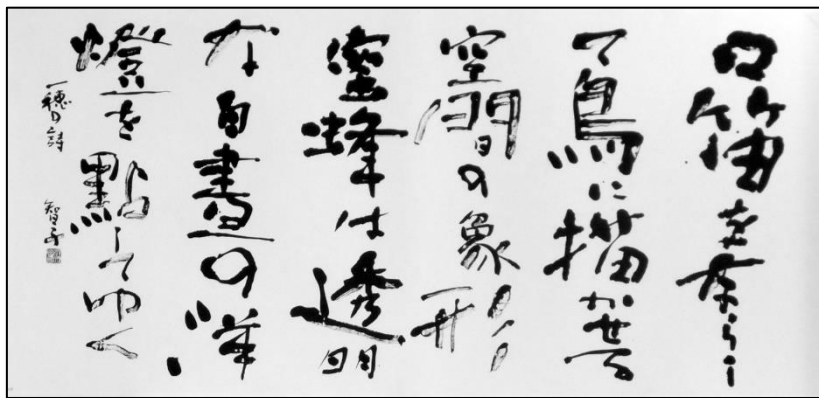 口笛を奈らし
て鳥に描かせる
空間の象形
蜜蜂は透明
な白晝の洋
燈を點してゆく
一穂の詩 智子